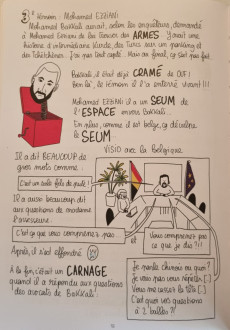 3e témoin : Mohamed EZZIANI
Mohamed Bakkali aurait, selon les enquêteurs, demandé
à Mohamed Ezziani de lui fournir des ARMES. Y avait une
histoire d'intermédiaire Kurde, des Turcs sur un parking et des
Tchétchènes. J'ai pas tout capté. Mais au final, ça s'est pas fait.
Bakkali, il était déjà CRAMÉ de OUF !
Ben là, le témoin il l'a enterré vivant !!!
Mohamed EZZIANI il a un SEUM de
l'ESPACE envers Bakkali.
En plus, comme il est belge, ça décolore
le SEUM...
VISIO avec la Belgique
Il a dit BEAUCOUP de
gros mots comme :
C'est un sale fils de putes !
Il a aussi beaucoup dit
aux questions de madame
l'assesseure :
C'est ça que vous comprenez pas...
et
Vous comprenez pas
ce que je dis !!!
Après, il s'est effondré
À la fin, c'était un CARNAGE
quand il a répondu aux questions
des avocats de Bakkali :
Je parle Chinois ou quoi ?
Je vais pas vous répéter [..]
Vous me cassez la tête [..]
C'est quoi vos questions
à 2 balles ?!